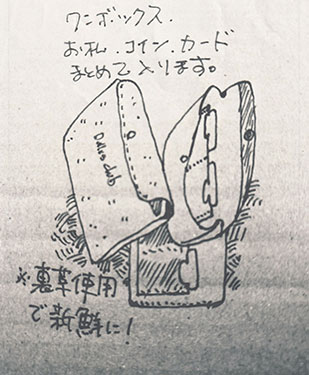 ワンボックス.
お札.コイン.カード
まとめて入ります。
※裏革使用
で新鮮に!